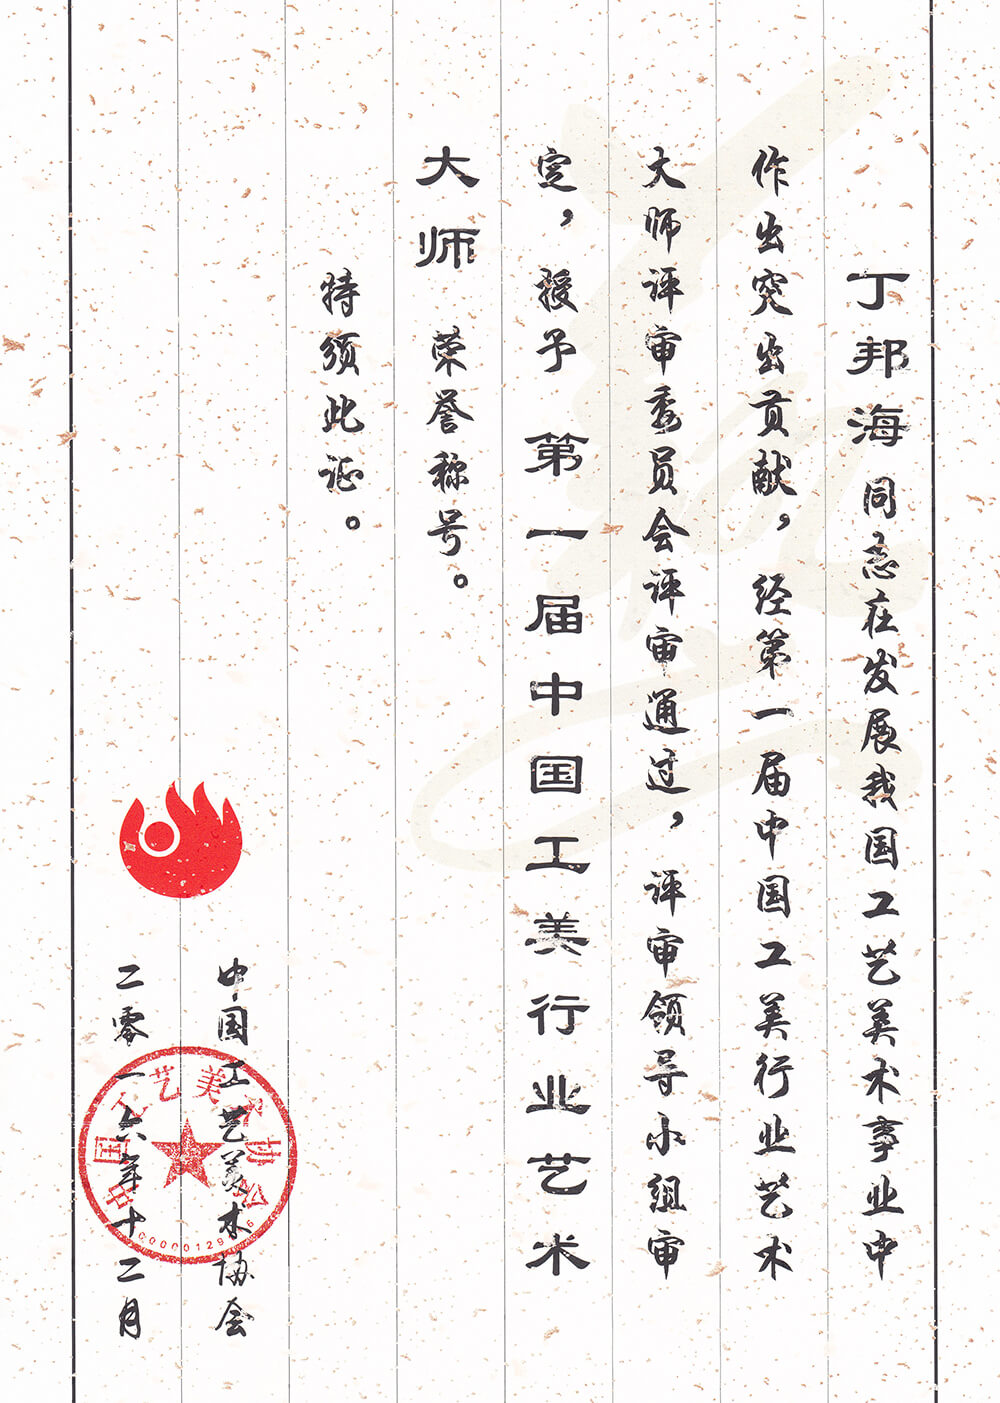 丁邦海同志在发展我国工艺美术事业中
作出突出贡献，经第一届中国工美行业艺术
大师评审委员会评审通过，评审领导小组审
定，授予 第一届中国工美行业艺术
大师 荣誉称号。
特颁此证。
中国工艺美术协会
二零一六年十二月
中国工艺美术协会